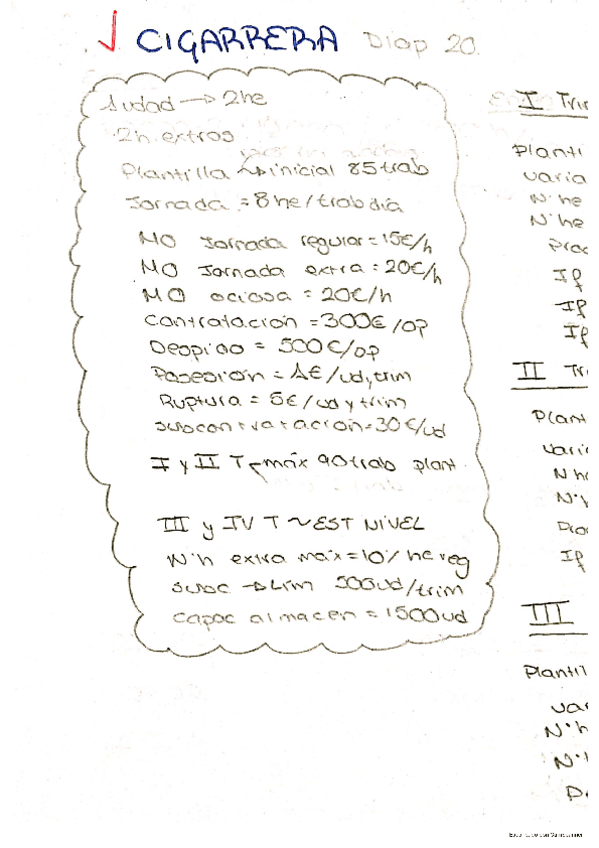 CIGARRERA Diap 20.
1udad → 2he
2h. extras
Plantilla → inicial 85 trab
Jornada = 8he/trab día
MO Jornada regular = 15€/h
MO Jornada extra = 20€/h
MO ociosa = 20€/h
Contratación = 300€/op
Despido = 500€/op
Posesión = 1€/ud y trim
Ruptura = 5€/ud y trim
Subcontratación = 30€/ud
I y II T máx 90 trab plant.
III y IV T ~ EST NIVEL
Nºh extra máx = 10% he reg
subc → Lím 500ud/trim
capac almacen = 1500ud
I Trim
Planti
varia
Nº he
Nº he
Proc
If
If
If
II Tr
Plant
vari
N he
Nº
Pro
If
III
Plantil
var
Nº h
Nº